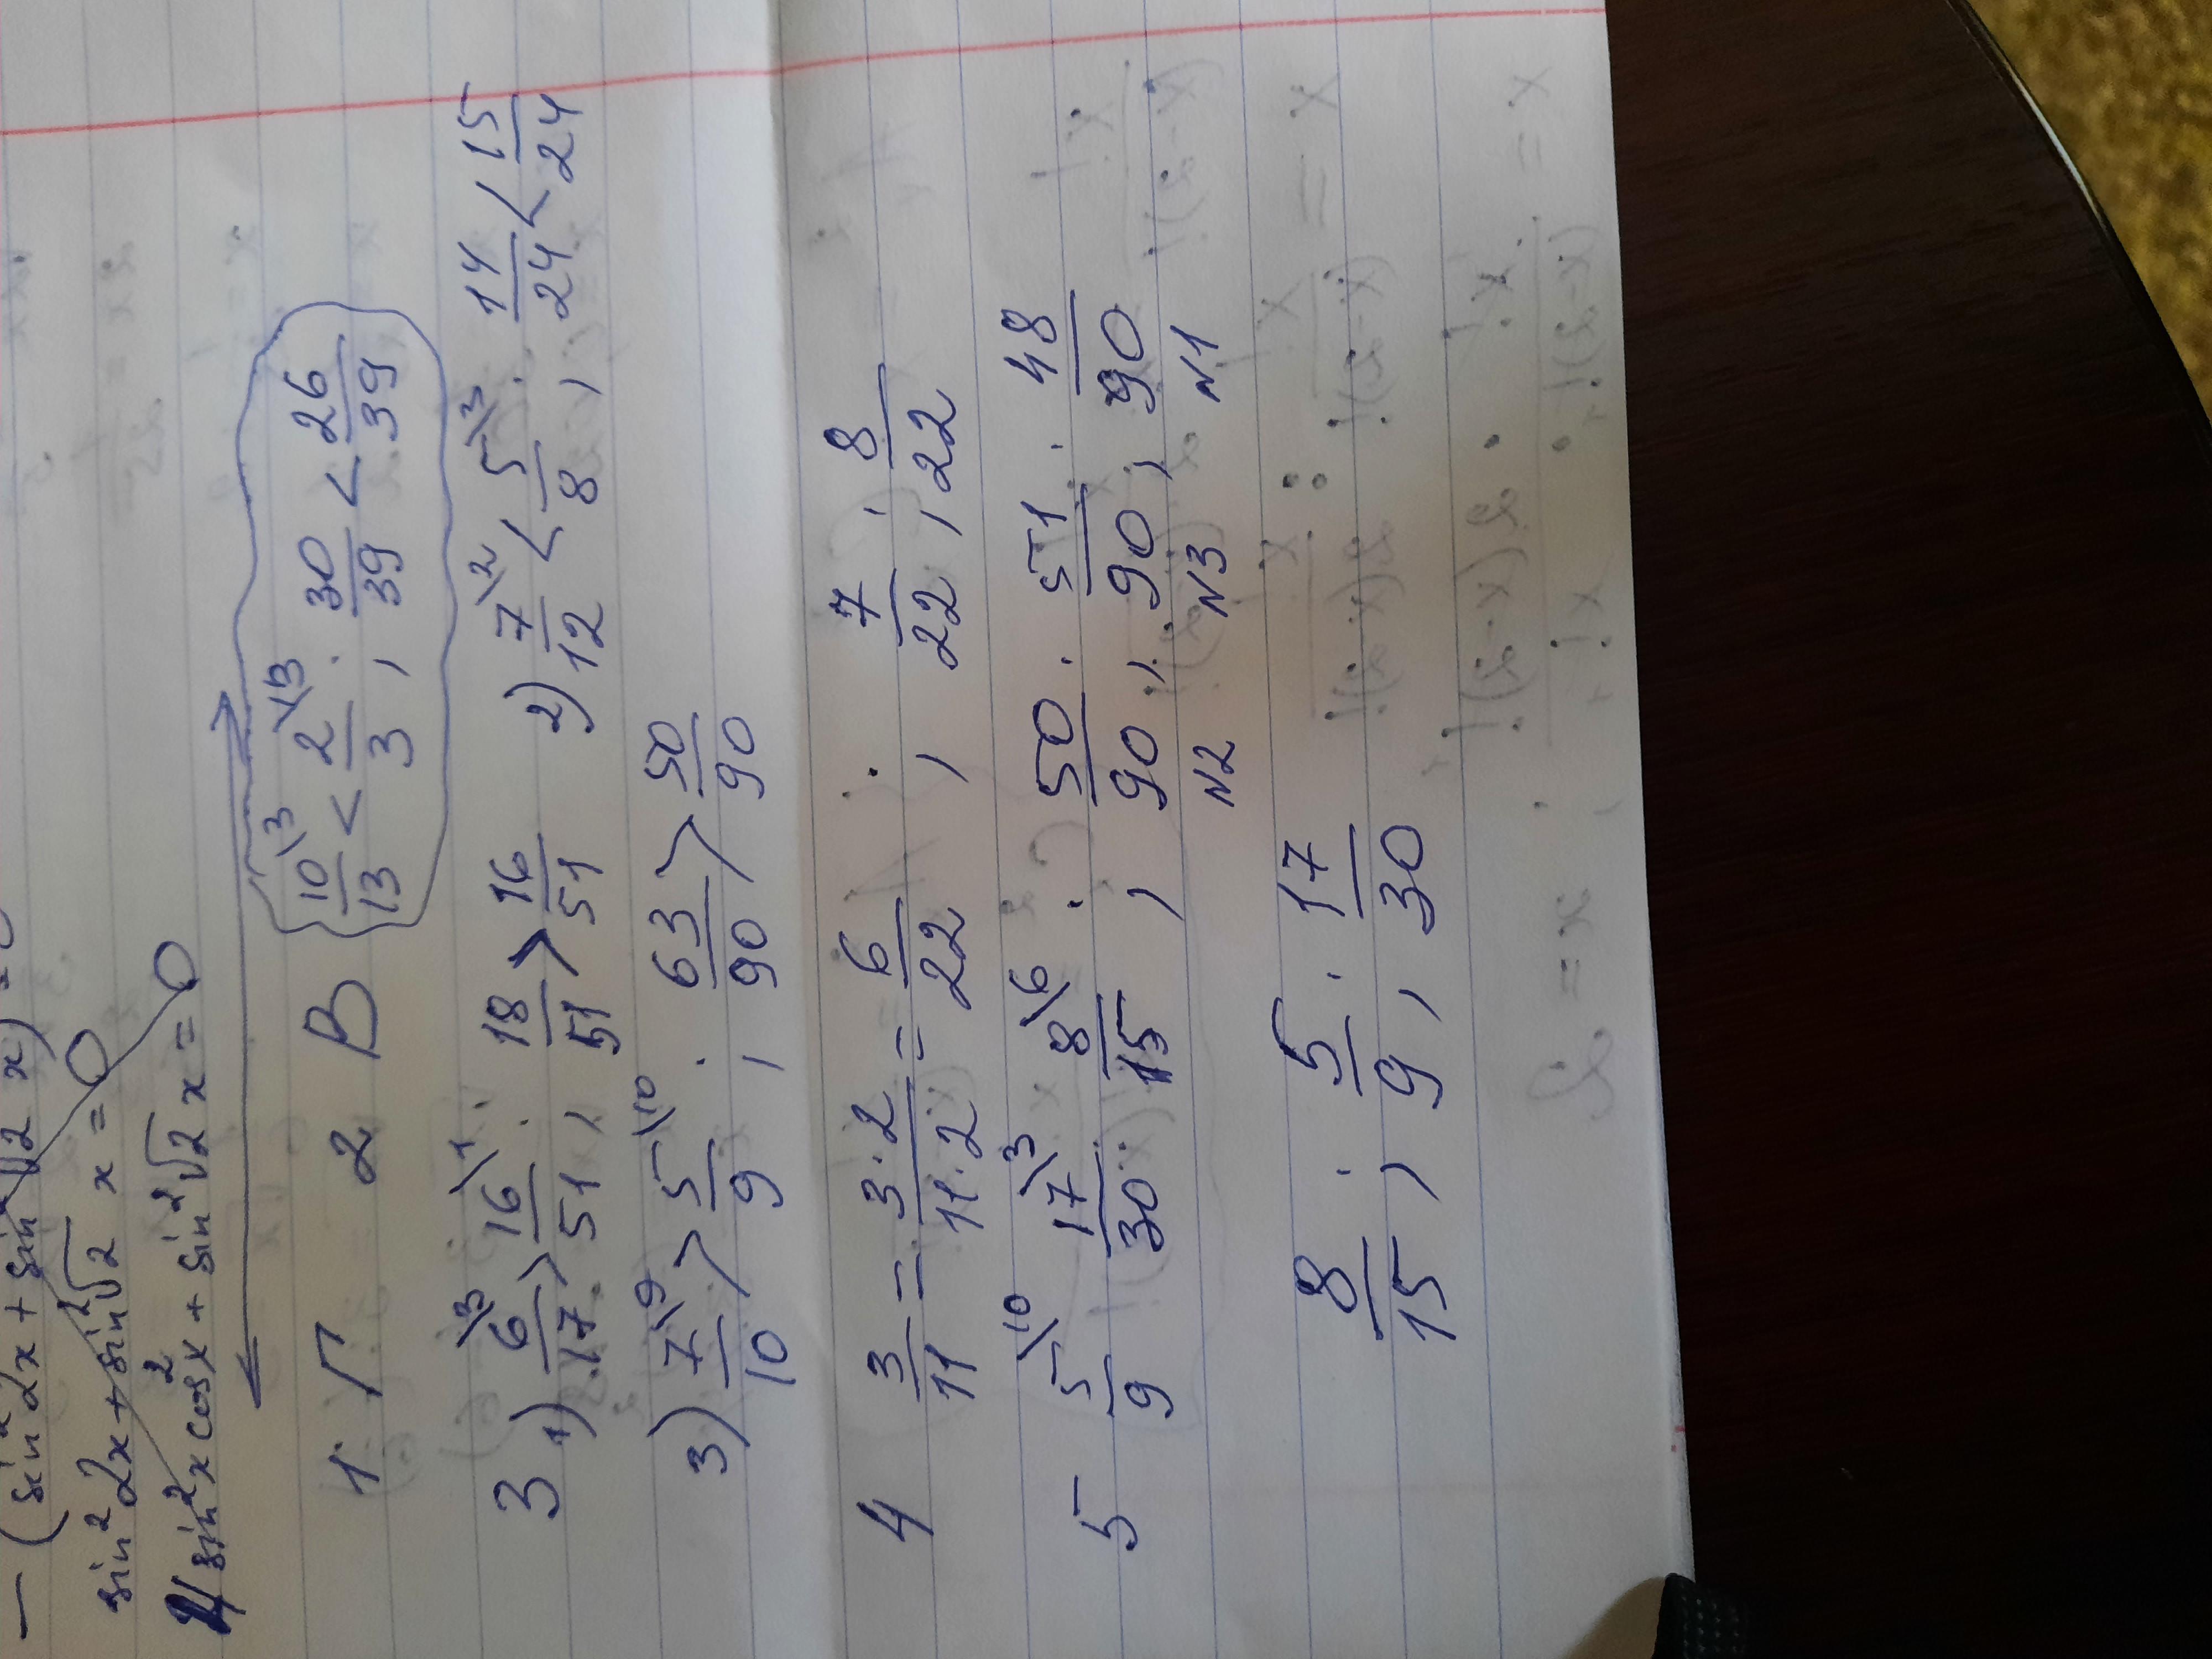 — (sin²2x + sin²√2 x)
sin²2x + sin²√2 x = 0
4 sin²x cos²x + sin²√2 x = 0
1 Г 2 В 10\3/13 < 2\13/3 ; 30/39 < 26/39
3 1) 6\3/17 > 16\1/51 ; 18/51 > 16/51 2) 7\2/12 < 5\3/8 ; 14/24 < 15/24
3) 7\9/10 > 5\10/9 ; 63/90 > 50/90
4 3/11 = 3·2/11·2 = 6/22 ; 7/22 ; 8/22
5 5\10/9 17\3/30 8\6/15 ; 50/90 ; 51/90 ; 48/90
N2 N3 N1
8/15 ; 5/9 ; 17/30